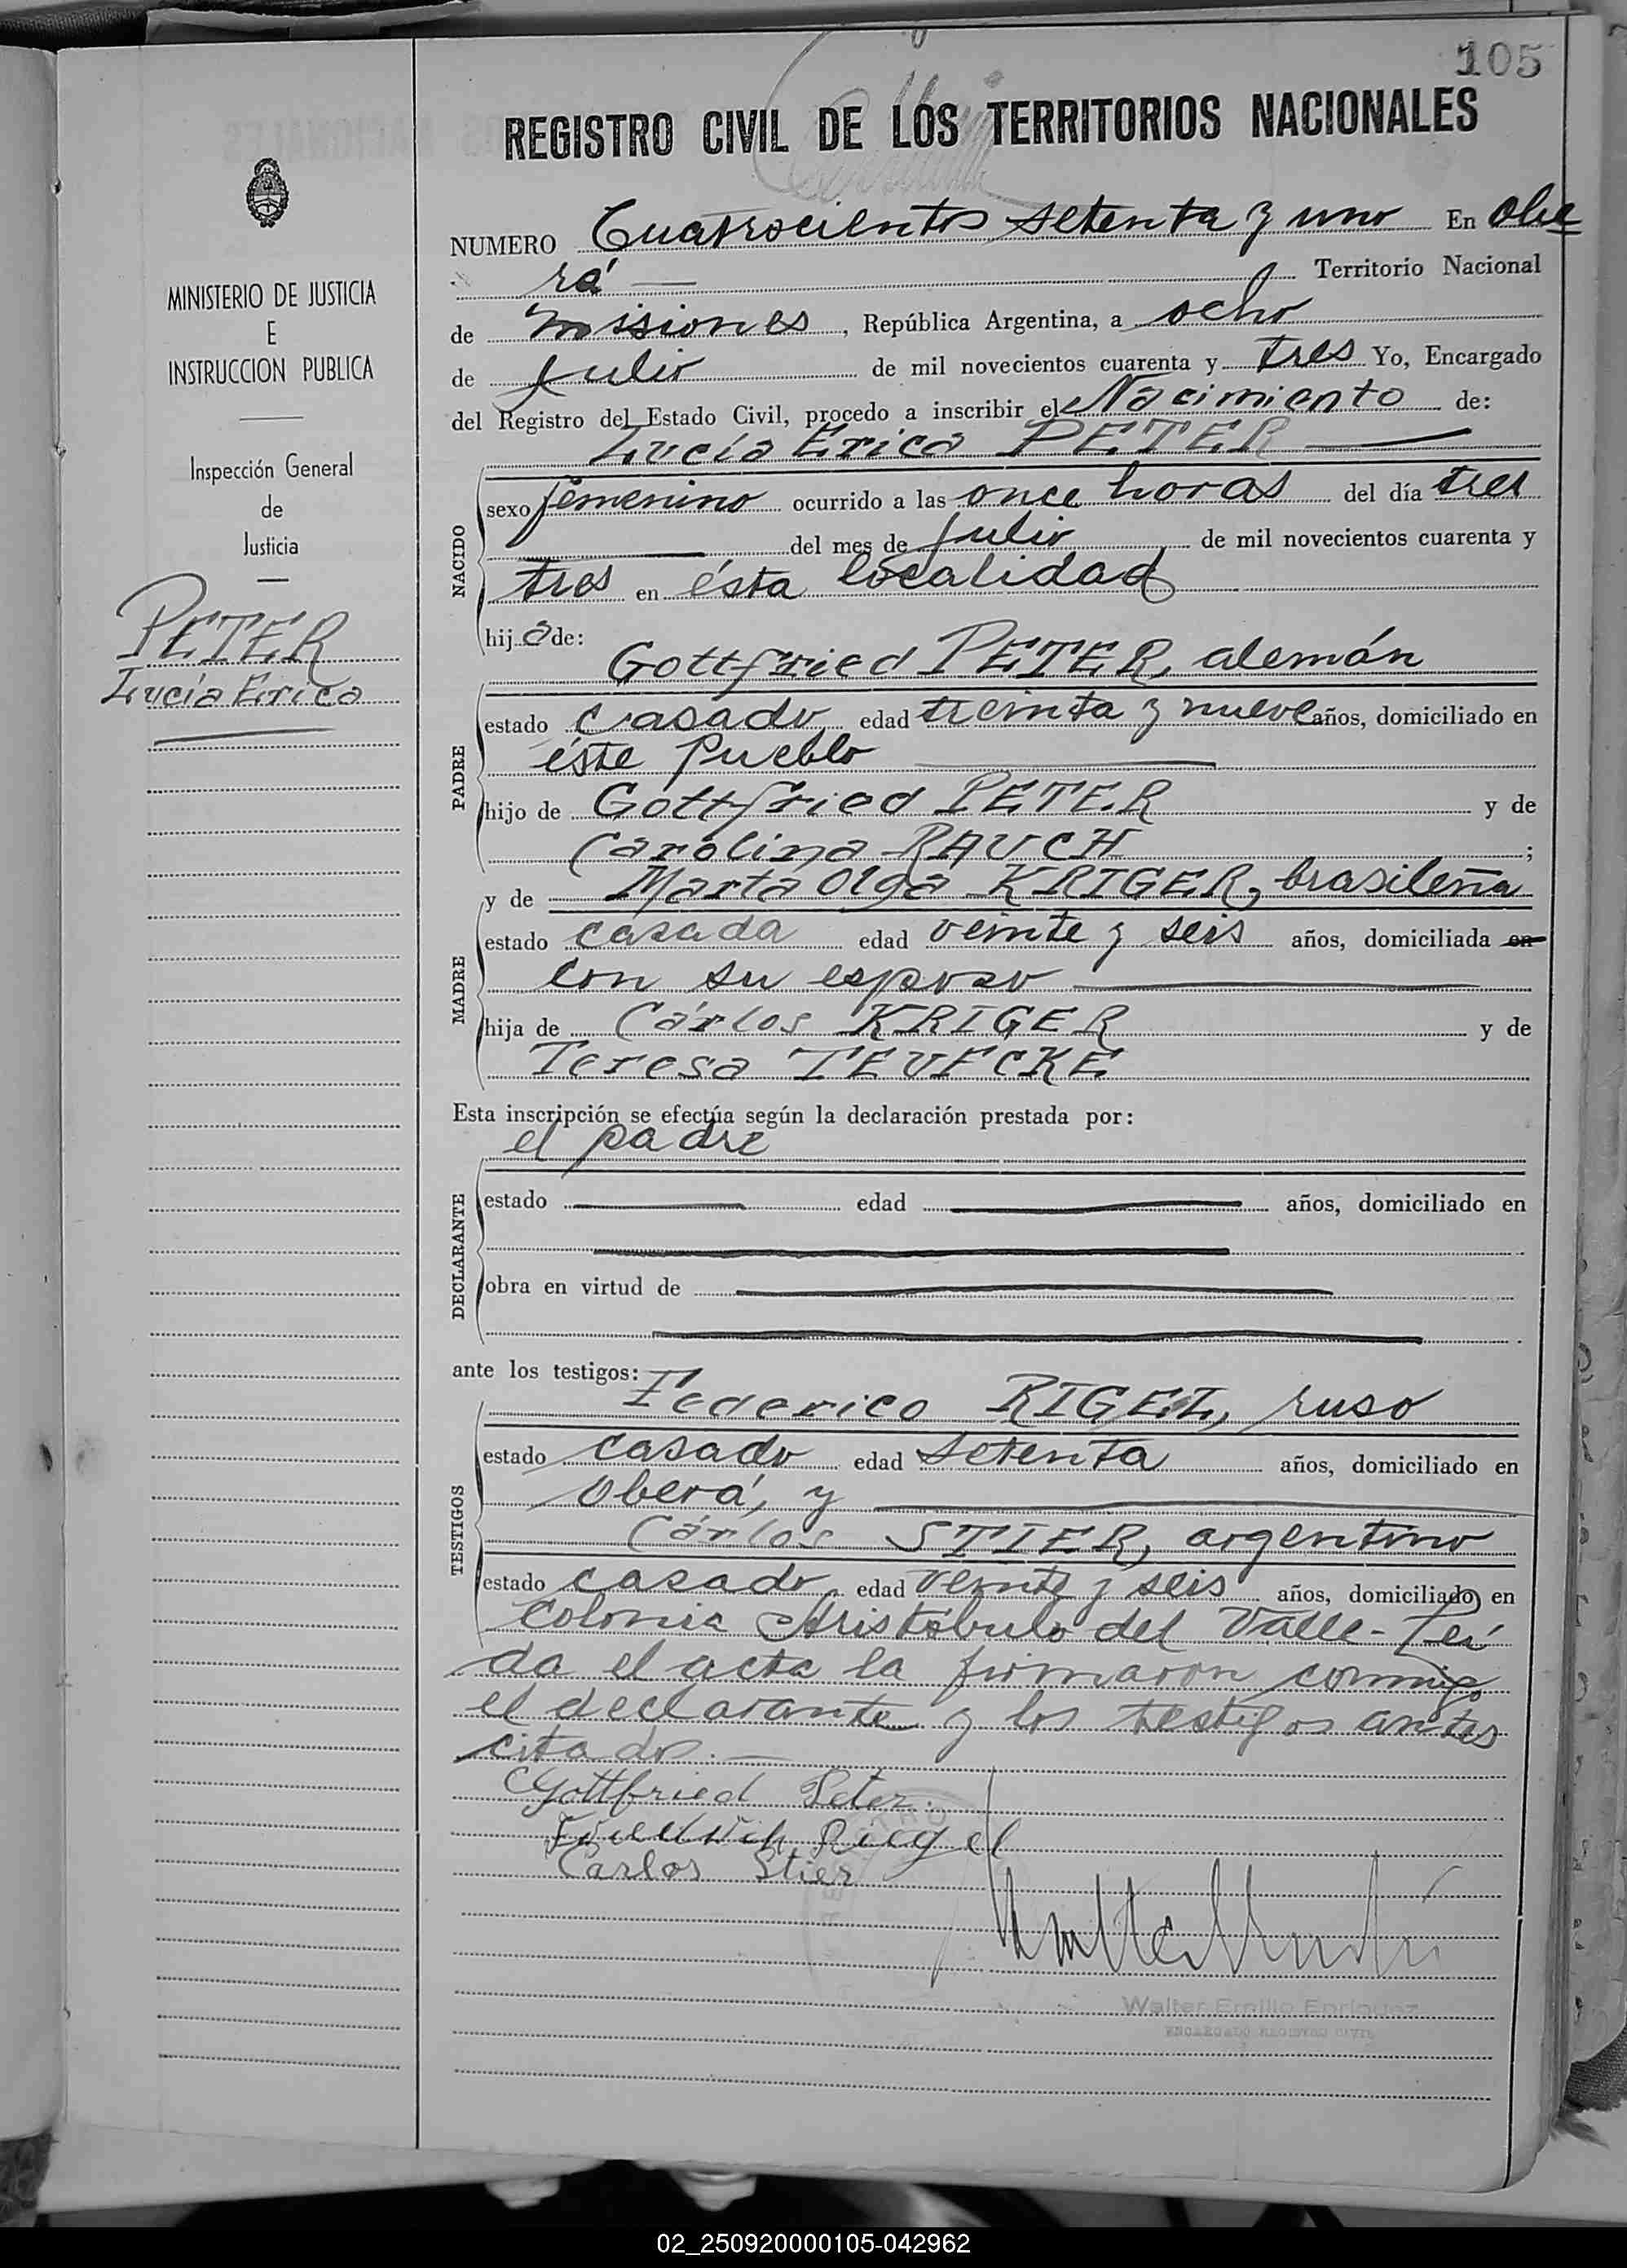 105
REGISTRO CIVIL DE LOS TERRITORIOS NACIONALES
NUMERO Cuatrocientos setenta y uno En Obe
rá — Territorio Nacional
de Misiones, República Argentina, a ocho
de Julio de mil novecientos cuarenta y tres Yo, Encargado
del Registro del Estado Civil, procedo a inscribir el Nacimiento de:
Lucía Erica PETER
NACIDO
sexo femenino ocurrido a las once horas del día tres
del mes de julio de mil novecientos cuarenta y
tres en ésta localidad
hija de:
Gottfried PETER, alemán
PADRE
estado casado edad treinta y nueve años, domiciliado en
éste pueblo
hijo de Gottfried PETER y de
Carolina RAUCH ;
y de Marta Olga KRIGER, brasileña
MADRE
estado casada edad veinte y seis años, domiciliada en
con su esposo
hija de Cárlos KRIGER y de
Teresa TEUFCKE
Esta inscripción se efectúa según la declaración prestada por:
el padre
DECLARANTE
estado edad años, domiciliado en
obra en virtud de
ante los testigos:
TESTIGOS
Federico RIGEL, ruso
estado casado edad setenta años, domiciliado en
Oberá, y
Cárlos STIER, argentino
estado casado edad veinte y seis años, domiciliado en
Colonia Aristóbulo del Valle- Leí
da el acta la firmaron conmigo
el declarante y los testigos antes
citados.—
Gottfried Peter.
Friedrich Riegel
Carlos Stier
Walter Emilio Enriquez
ENCARGADO REGISTRO CIVIL
MINISTERIO DE JUSTICIA
E
INSTRUCCION PUBLICA
Inspección General
de
Justicia
PETER
Lucía Erica
02_250920000105-042962